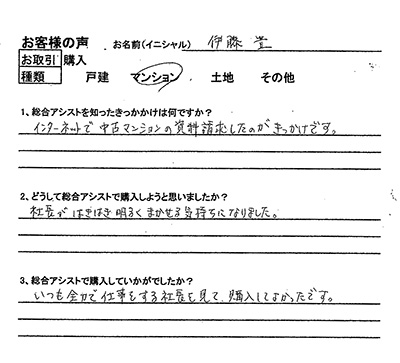 お客様の声 お名前(イニシャル) 伊藤 豊
お取引 購入
種類 戸建 マンション 土地 その他
1、総合アシストを知ったきっかけは何ですか?
インターネットで中古マンションの資料請求したのがきっかけです。
2、どうして総合アシストで購入しようと思いましたか?
社長がはきはき明るくまかせる気持ちになりました。
3、総合アシストで購入していかがでしたか?
いつも全力で仕事をする社長を見て、購入してよかったです。